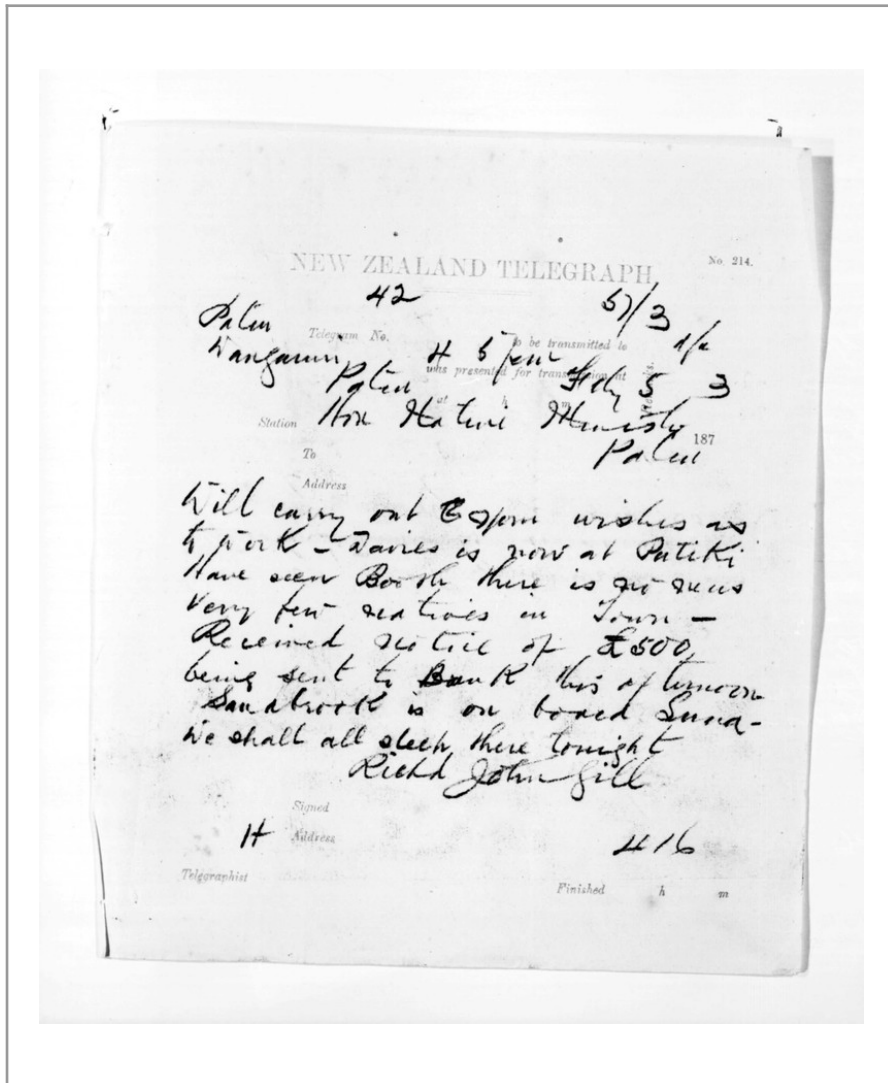 NEW ZEALAND TELEGRAPH.
No. 214.
42 57/3
Patea
Telegram No. to be transmitted to
Wanganui 4 5 pm
was presented for transmission at
Patea Feby 5 3
at h m
Station Hon Native Minister
187
To Patea
Address
Will carry out your wishes as
to work – Davies is now at Putiki
Have seen Booth there is no news
Very few natives in Town –
Received notice of £500
being sent to Bank this afternoon
Sandbrook is on board Luna –
We shall all sleep there tonight
Richd John Gill
Signed
H Address 416
Telegraphist
Finished h m